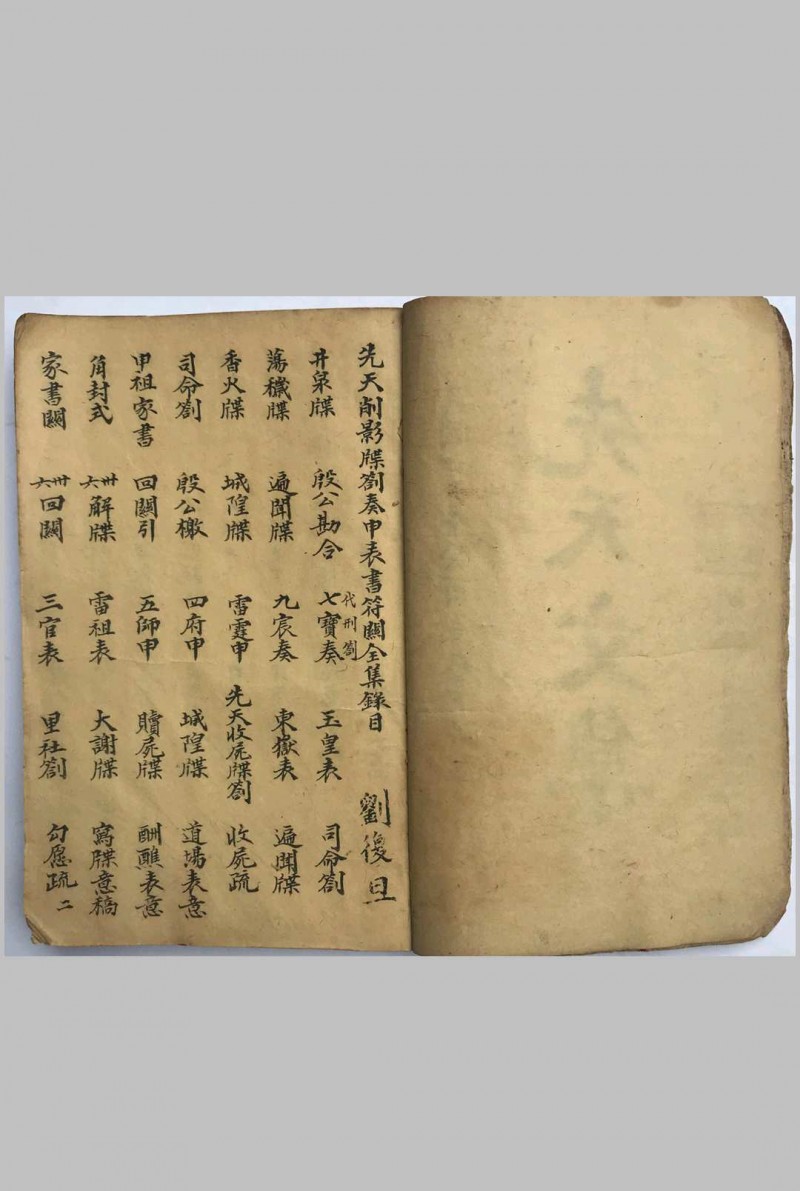 先天削影牒劄奏申表書符關全集錄目 劉復旦
井泉牒 殷公勘合 代刑劄 七寶奏 玉皇表 司命劄
蕩穢牒 遍聞牒 九宸奏 東嶽表 遍聞牒
香火牒 城隍牒 雷霆申 先天收屍牒劄 收屍疏
司命劄 殷公檄 四府申 城隍牒 道場表意
申祖家書 回關引 五師申 贖屍牒 酬醮表意
角封式 卅六解牒 雷祖表 大謝牒 寫牒意稿
家書關 卅六回關 三官表 里社劄 勾愿疏 二